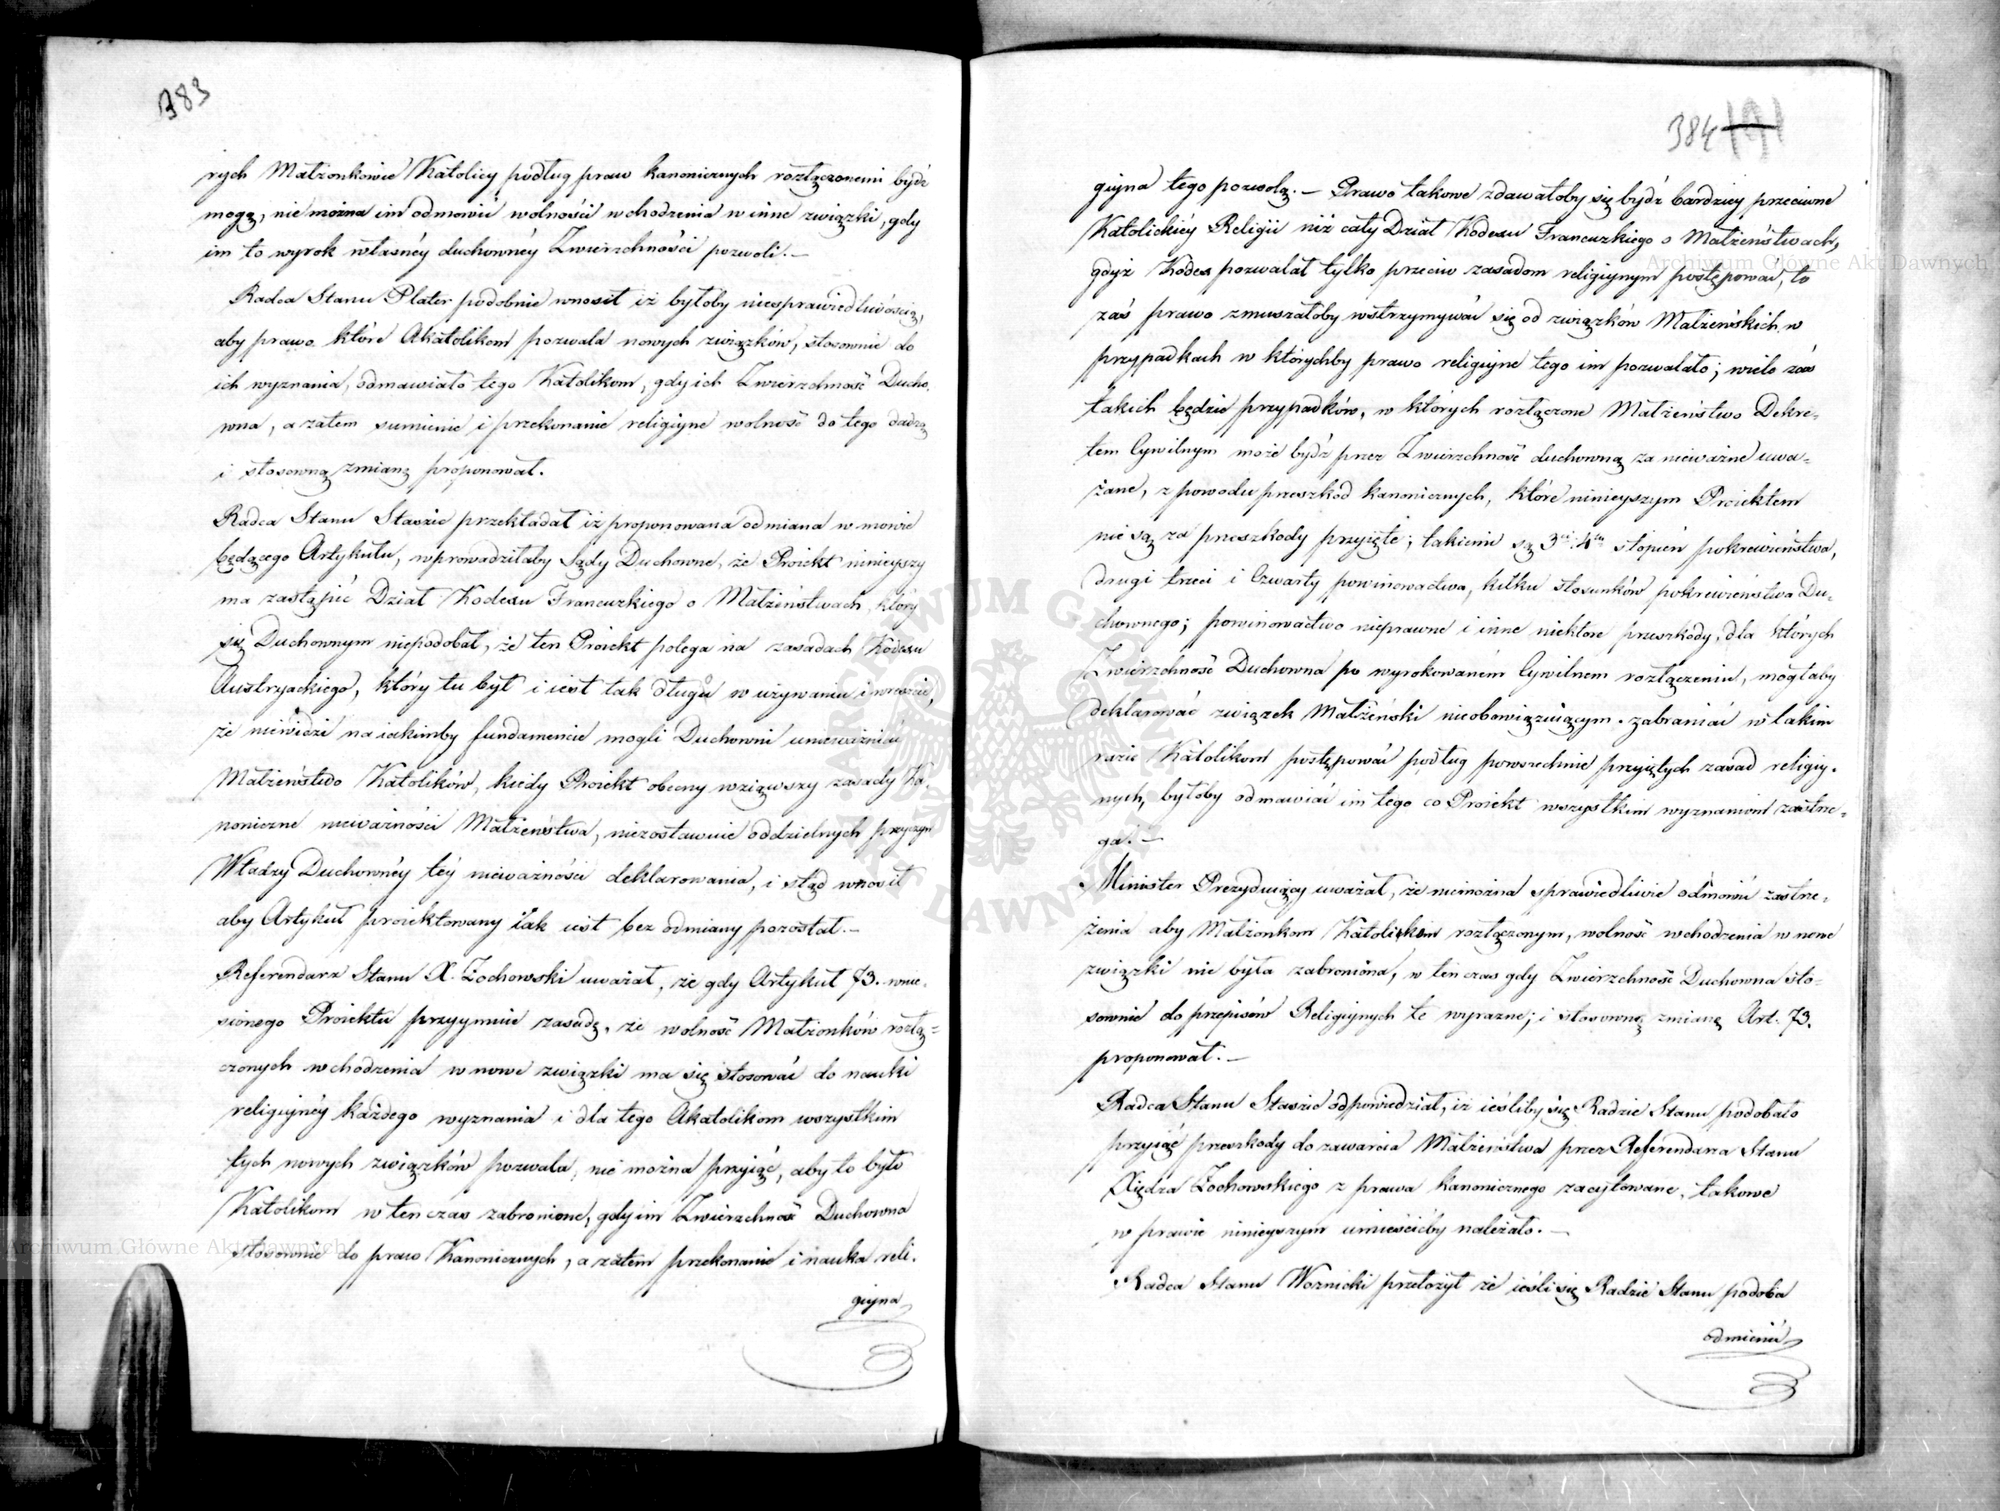 383
rych Małżonkowie Katolicy podług praw kanonicznych rozłączonemi bydź
mogą, nie można im odmówić wolności wchodzenia w inne związki, gdy
im to wyrok własnéy duchownéy Zwierzchności pozwoli. –
Radca Stanu Plater podobnie wnosił iż byłoby niesprawiedliwością,
aby prawo które Akatolikom pozwala nowych związków, stosownie do
ich wyznania, odmawiało tego Katolikom, gdy ich Zwierzchność Ducho-
wna, a zatem sumienie i przekonanie religiyne wolność do tego dadzą
i stosowną zmianę proponował.
Radca Stanu Staszic przekładał iż proponowana odmiana w mowie
będącego Artykułu, wprowadziłaby Sądy Duchowne, że Proiekt ninieyszy
ma zastąpić Dział Kodexu Francuzkiego o Małżeństwach, który
się Duchownym niepodobał, że ten Proiekt polega na zasadach Kodexu
Austryackiego, który tu był i iest tak długo w używaniu i wreszcie,
że niewidzi na iakimby fundamencie mogli Duchowni unieważniać
Małżeństwo Katolików, kiedy Proiekt obecny wziąwszy zasady Ka-
noniczne nieważności Małżeństwa, niezostawuie oddzielnych przyczyn
Władzy Duchownéy téy nieważności deklarowania, i stąd wnosił
aby Artykuł proiektowany iak iest bez odmiany pozostał. –
Referendarz Stanu X. Żochowski uważał, że gdy Artykuł 73. wnie-
sionego Proiektu przyymuie zasadę, że wolność Małżonków rozłą-
czonych wchodzenia w nowe związki ma się stosować do nauki
religiynéy każdego wyznania i dla tego Akatolikom wszystkim
tych nowych związków pozwala, nie można przyiąć, aby to było
Katolikom w ten czas zabronione, gdy im Zwierzchność Duchowna
stosownie do praw Kanonicznych, a zatem przekonanie i nauka reli-
giyna
384 191
giyna tego pozwolą. – Prawo takowe zdawałoby się bydź bardziey przeciwne
Katolickiéy Religii niż cały Dział Kodexu Francuzkiego o Małżeństwach,
gdyż Kodex pozwalał tylko przeciw zasadom religiynym postępować, to
zaś prawo zmuszałoby wstrzymywać się od związków Małżeńskich w
przypadkach w którychby prawo religiyne tego im pozwalało; wiele zaś
takich będzie przypadków, w których rozłączone Małżeństwo Dekre-
tem Cywilnym może bydź przez Zwierzchność duchowną za nieważne uwa-
żane, z powodu przeszkod kanonicznych, które ninieyszym Proiektem
nie są za przeszkody przyięte; takiemi są 3ci 4ty stopień pokrewieństwa,
drugi trzeci i Czwarty powinowactwa, kilku stosunków pokrewieństwa Du-
chownego; powinowactwo nieprawne i inne niektóre przeszkody, dla których
Zwierzchność Duchowna po wyrokowaném Cywilnem rozłączeniu, mogłaby
deklarować związek Małżeński nieobowiązuiącym. zabraniać w takim
razie Katolikom postępować podług powszechnie przyiętych zasad religiy-
nych, byłoby odmawiać im tego co Proiekt wszystkim wyznaniom zastrze-
ga. –
Minister Prezyduiący uważał, że niemożna sprawiedliwie odmówić zastrze-
żenia aby Małżonkom Katolickim rozłączonym, wolność wchodzenia w nowe
związki nie była zabroniona, w ten czas gdy Zwierzchność Duchowna sto-
sownie do przepisów Religiynych te wyrazne; i stosowną zmianę Art. 73.
proponował. –
Radca Stanu Staszic odpowiedział, iż ieśliby się Radzie Stanu podobało
przyiąć przeszkody do zawarcia Małżeństwa przez Referendarza Stanu
Xiędza Żochowskiego z prawa kanonicznego zacytowane, takowe
w prawie ninieyszym umieścićby należało. –
Radca Stanu Woznicki przełożył że ieśli się Radzie Stanu podoba
odmienić
Archiwum Główne Akt Dawnych
Archiwum Główne Akt Dawnych
ARCHIWUM GŁÓWNE AKT DAWNYCH